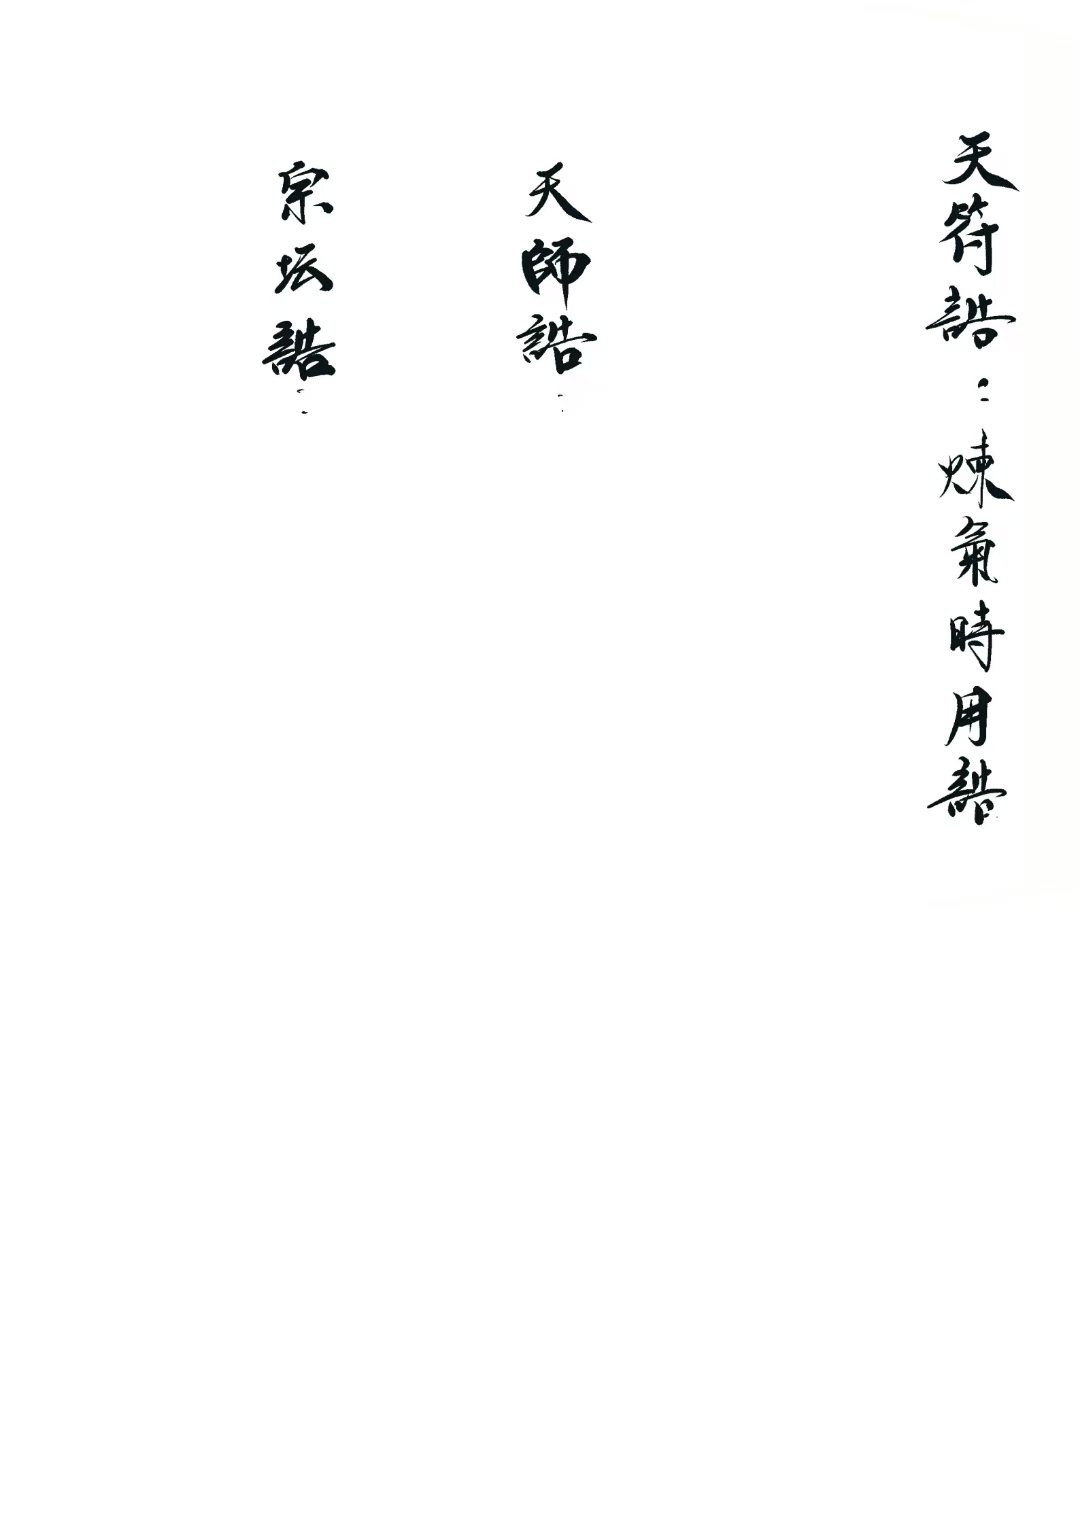 天符誥：煉氣時用誥
天師誥：
宗坛誥：